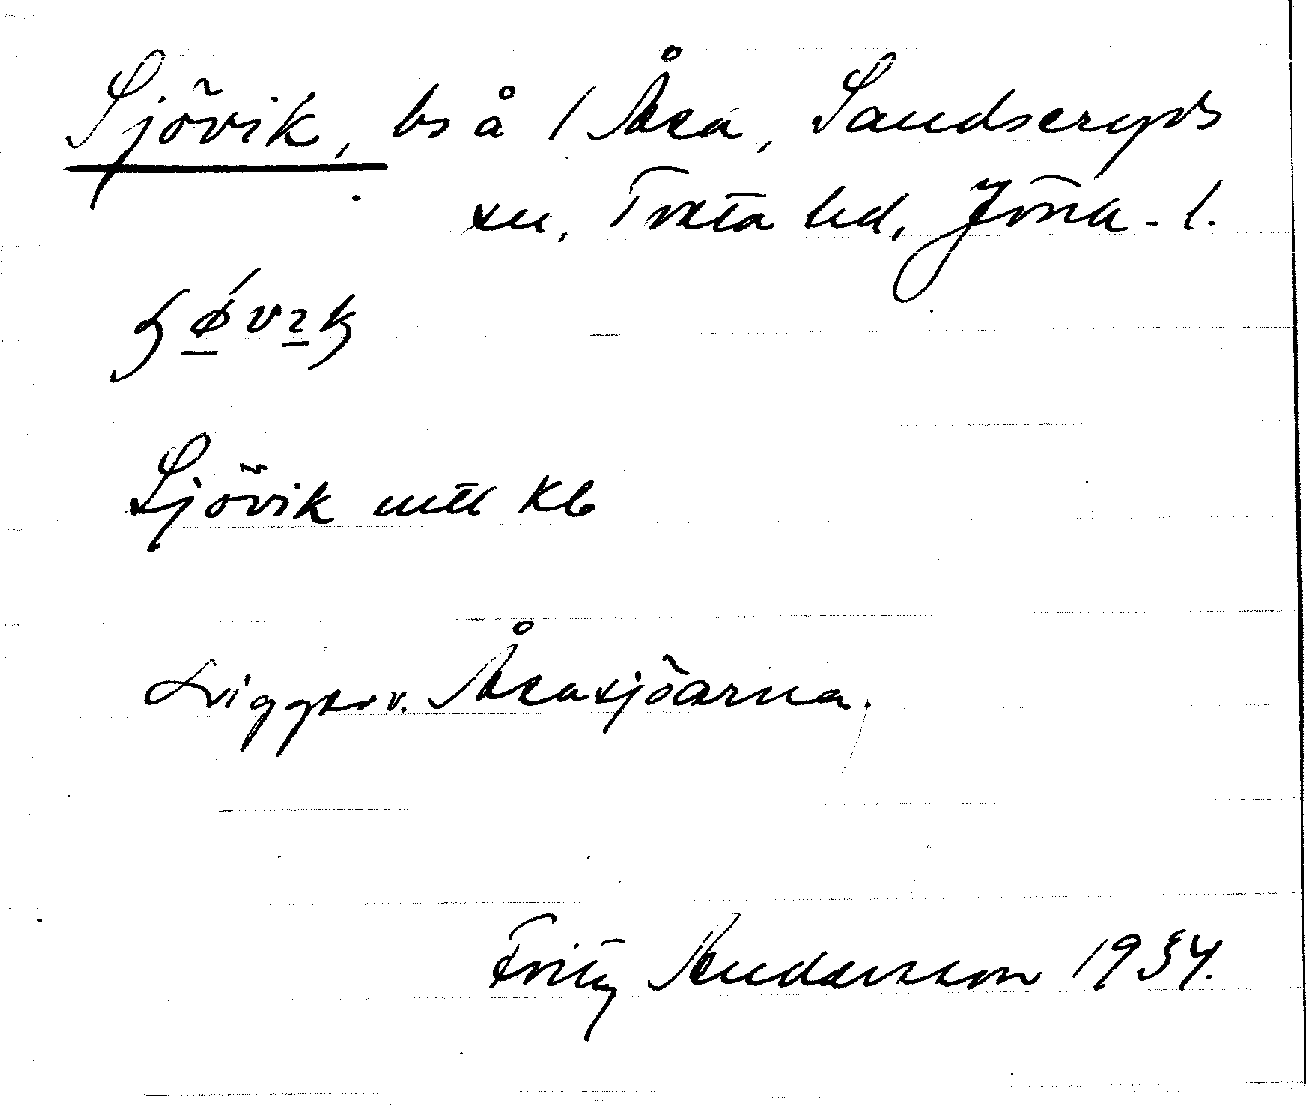 Sjövik, bs å 1 Åsa, Sandseryds
sn, Tveta hd, Jönk. l.
Sjövik mtl Kb
Ligger v. Åsasjöarna.
Fritz Andersson 1934.